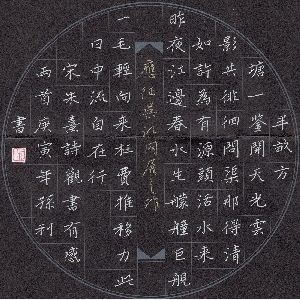 半畝方
塘一鑒開天光雲
影共徘徊問渠那得清
如許為有源頭活水來
昨夜江邊春水生艨艟巨艦
一毛輕向來枉費推移力此
日中流自在行
宋朱熹詩觀書有感
兩首庚寅年孫刊
書